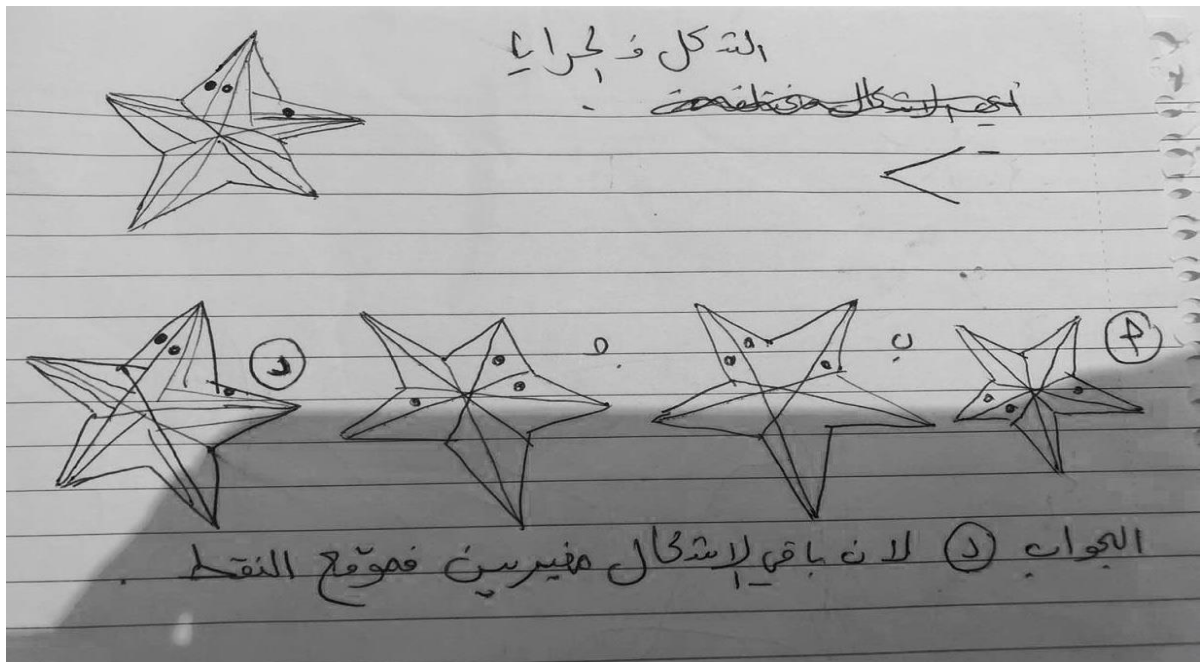 الشكل ف المرايا
أ
ب
ج
د
الجواب د لان باقي الاشكال مغيرين فموقع النقط .